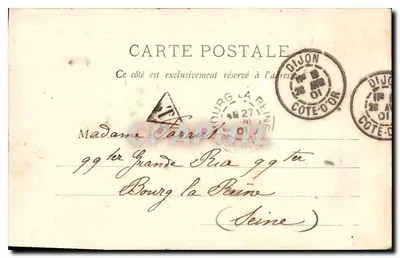 CARTE POSTALE
Ce côté est exclusivement réservé à l'adresse
DIJON
28 AVR
01
COTE-D'OR
DIJ
28 A
01
COTE-D
T
BOURG LA REINE
27
01
Madame
99ter Grande Rue 99ter
Bourg la Reine
(Seine)